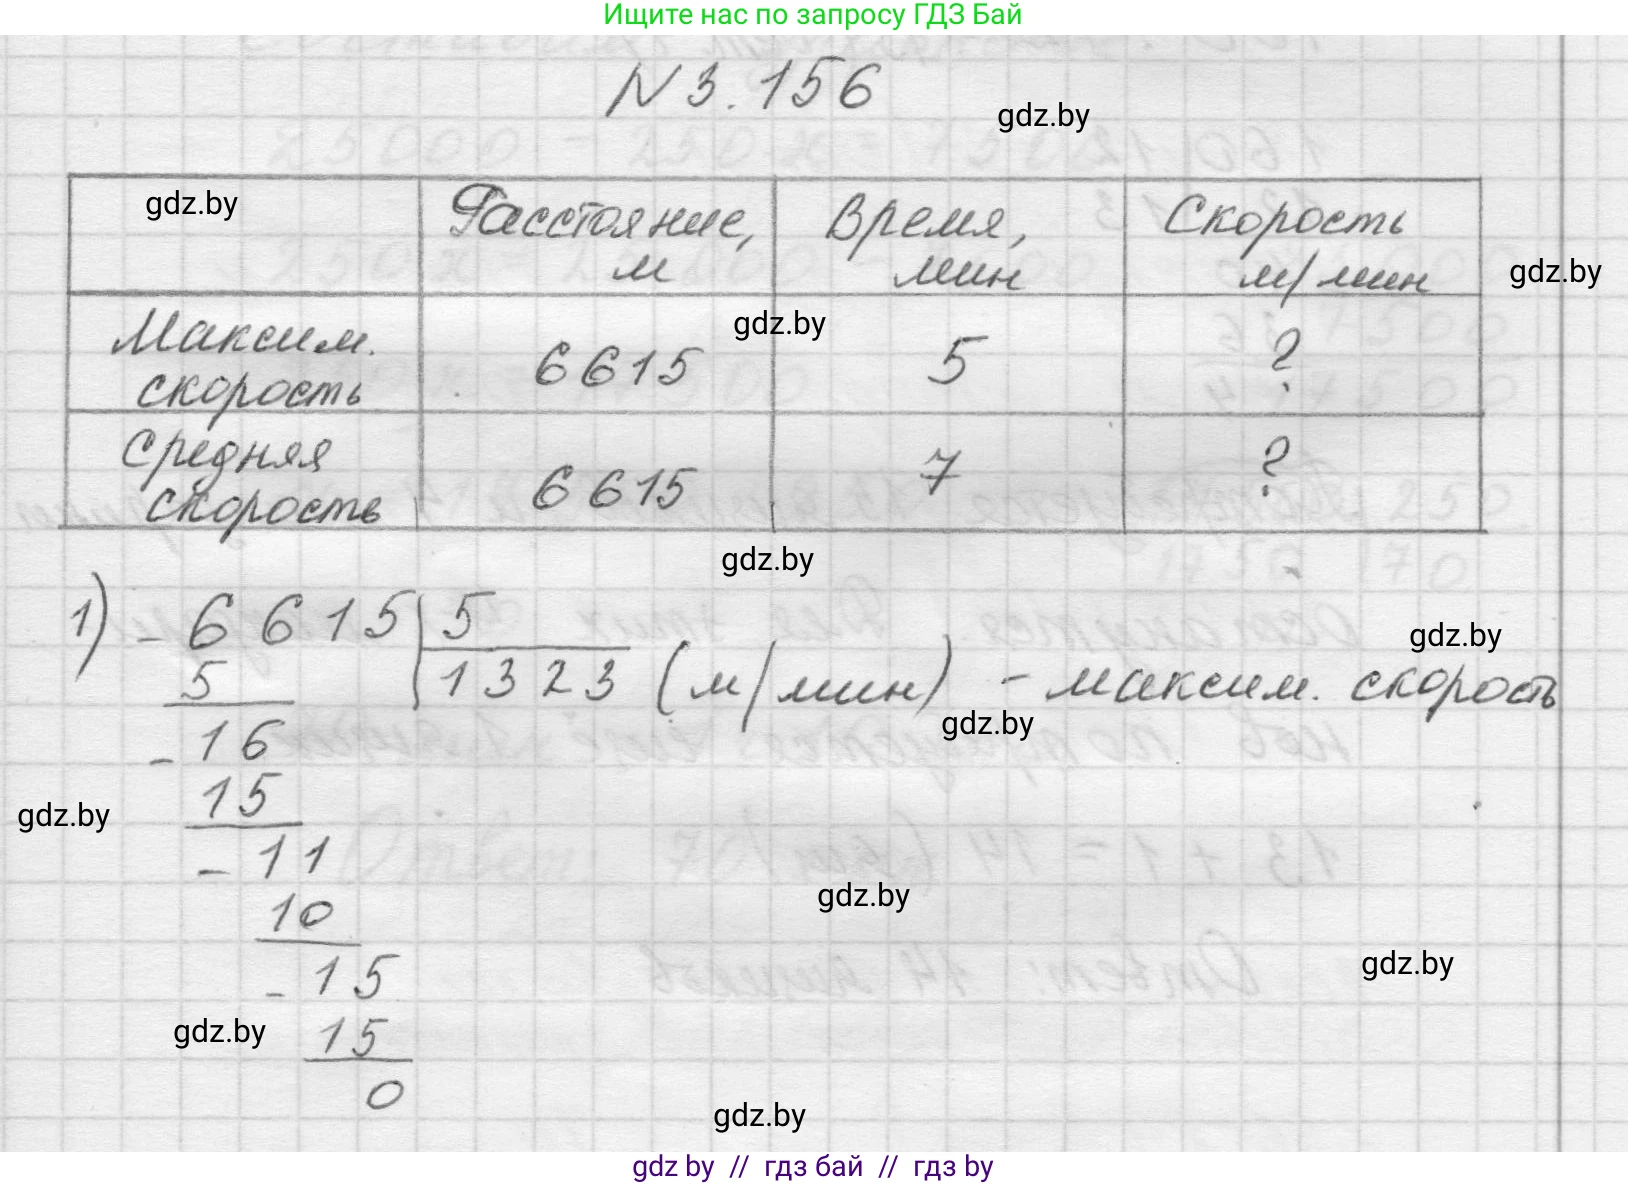 Ищите нас по запросу ГДЗ Бай
N 3.156
gdz.by
gdz.by
Расстояние, м
Время, мин
Скорость м/мин
gdz.by
Максим. скорость
6615
gdz.by
5
?
Средняя скорость
6615
7
?
gdz.by
1) - 6615 | 5
gdz.by
5
1323 (м/мин) - максим. скорость
gdz.by
- 16
15
gdz.by
- 11
gdz.by
10
gdz.by
- 15
gdz.by
15
0
gdz.by
gdz by // гдз бай // гдз by